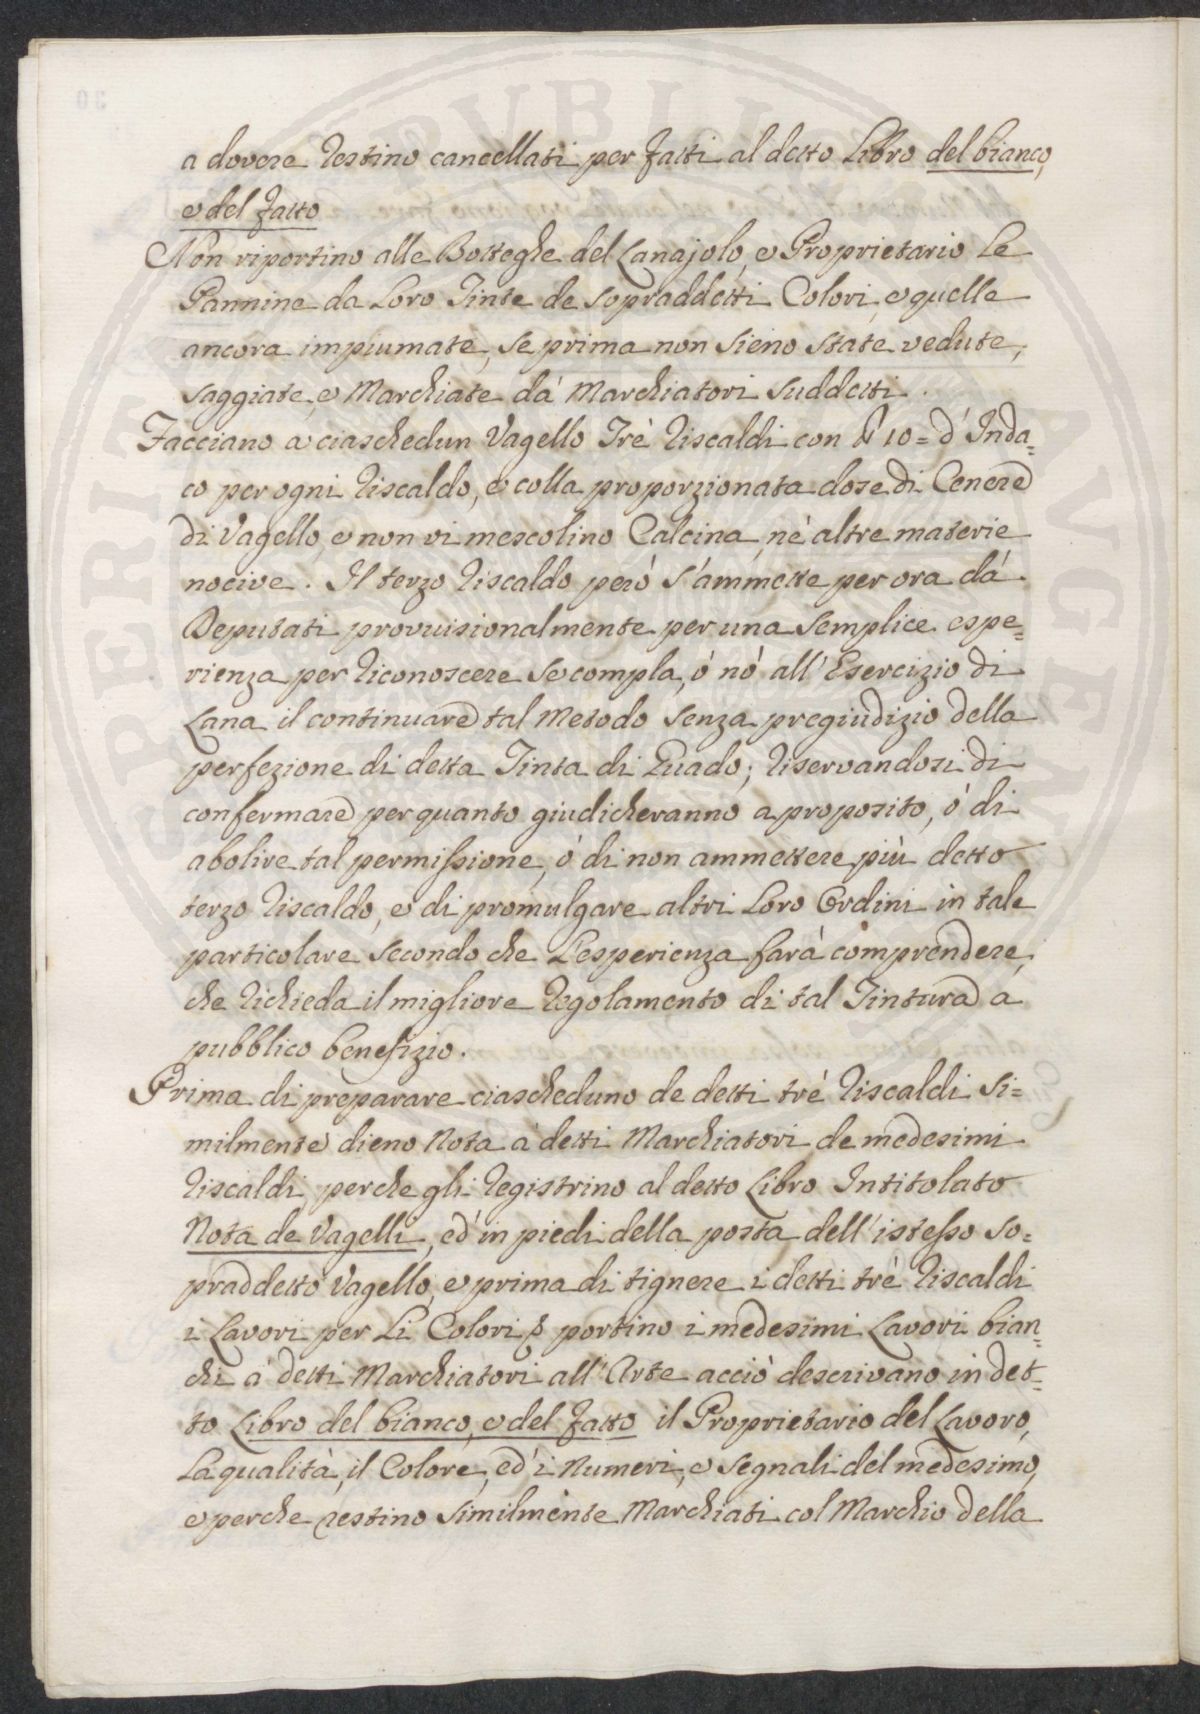 a dovere restino cancellati per fatti al detto Libro del bianco,
e del fatto
Non riportino alle Botteghe del Lanajolo, e Proprietario Le
Pannine da Loro Tinte de sopraddetti Colori, e quelle
ancora impiumate, se prima non sieno state vedute,
saggiate, e Marchiate dà Marchiatori suddetti.
Facciano a ciaschedun Vagello Trè riscaldi con 10= d'Inda=
co per ogni riscaldo, e colla proporzionata dose di Cenere
di Vagello, e non vi mescolino Calcina, nè altre materie
nocive. Il terzo riscaldo però s'ammette per ora dà
Deputati provvisionalmente per una semplice espe=
rienza per riconoscere se compla, ò nò all'Esercizio di
Lana il continuare tal Metodo senza pregiudizio della
perfezione di detta Tinta di Guado; riservandosi di
confermare per quanto giudicheranno a proposito, ò di
abolire tal permissione, ò di non ammettere più detto
terzo riscaldo, e di promulgare altri Loro Ordini in tale
particolare secondo che L'esperienza farà comprendere,
che richieda il migliore regolamento di tal Tintura a
pubblico benefizio.
Prima di preparare ciascheduno de detti trè riscaldi si=
milmente dieno Nota à detti Marchiatori de medesimi
riscaldi, perche gli registrino al detto Libro Intitolato
Nota de Vagelli, ed' in piedi della posta dell'istesso so=
praddetto Vagello, e prima di tignere i detti trè riscaldi
i Lavori per Li Colori portino i medesimi Lavori bian=
chi à detti Marchiatori all'Arte acciò descrivano in det=
to Libro del bianco, e del fatto il Proprietario del Lavoro,
La qualità, il Colore, ed' i Numeri, e segnali del medesimo,
e perche restino similmente Marchiati col Marchio della